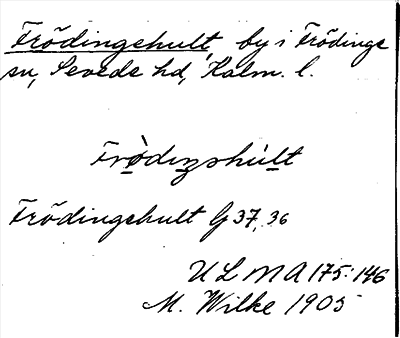 Frödingehult, by i Frödinge
sn, Sevede hd, Kalm. l.
Frödingshult
Frödingehult G 37, 36
ULMA 175:146
M. Wilke 1905